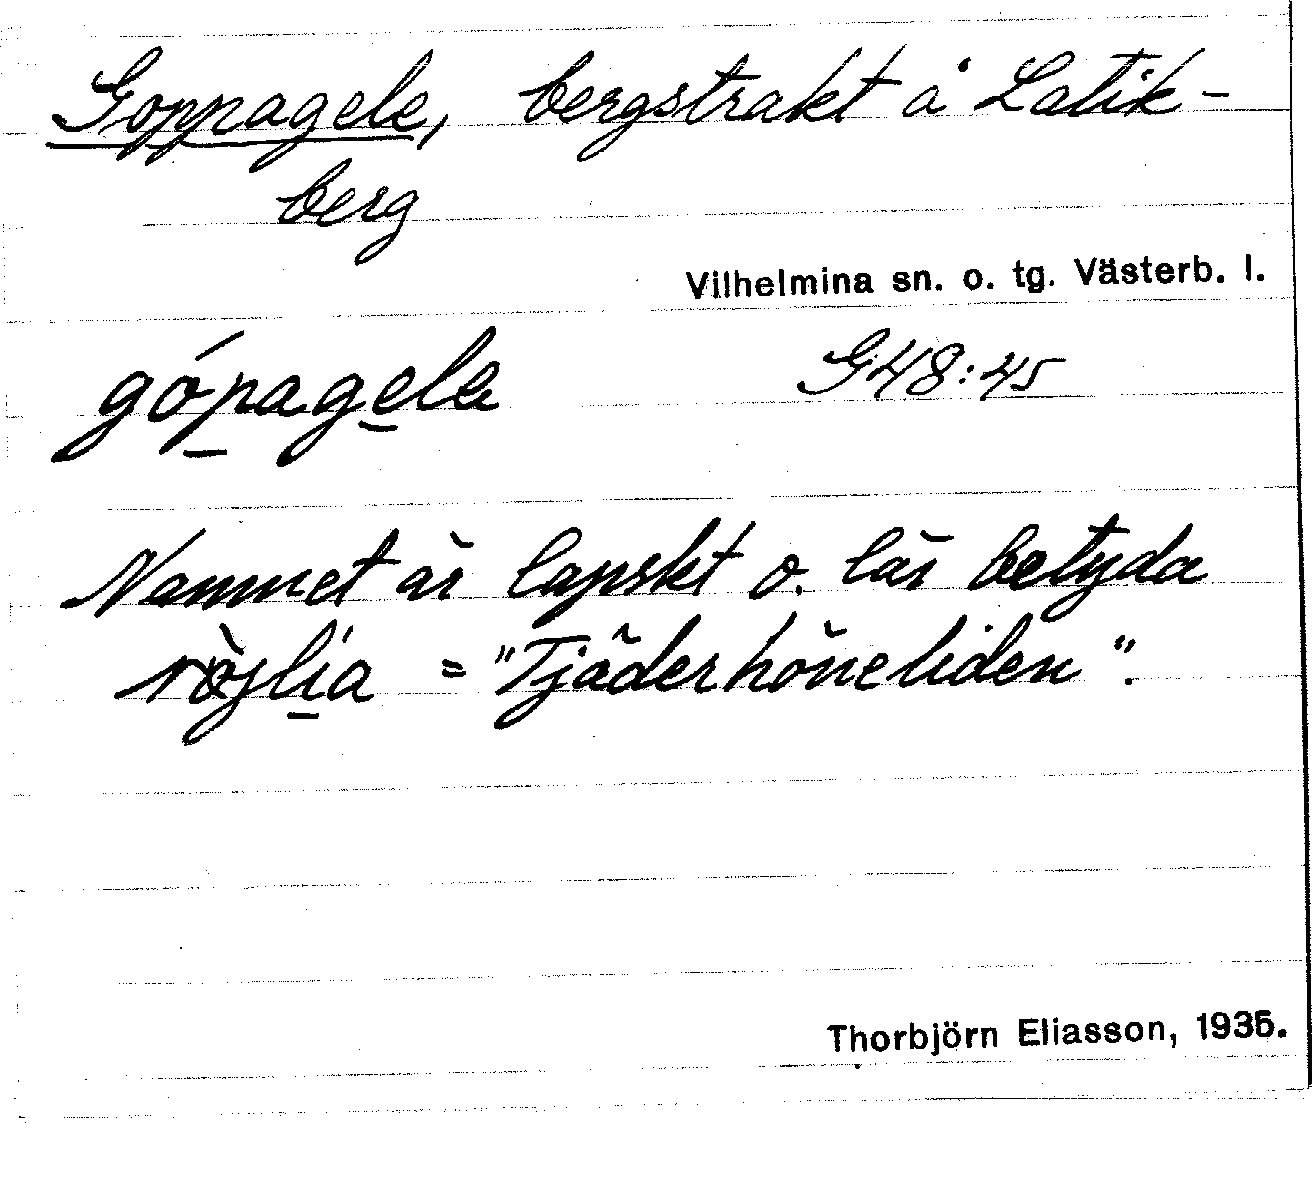 Goppagele, bergstrakt å Latik-
berg
Vilhelmina sn. o. tg. Västerb. l.
gópagela G48:45
Namnet är lapskt o. lär betyda
röjlia = "Tjäderhöneliden".
Thorbjörn Eliasson, 1935.